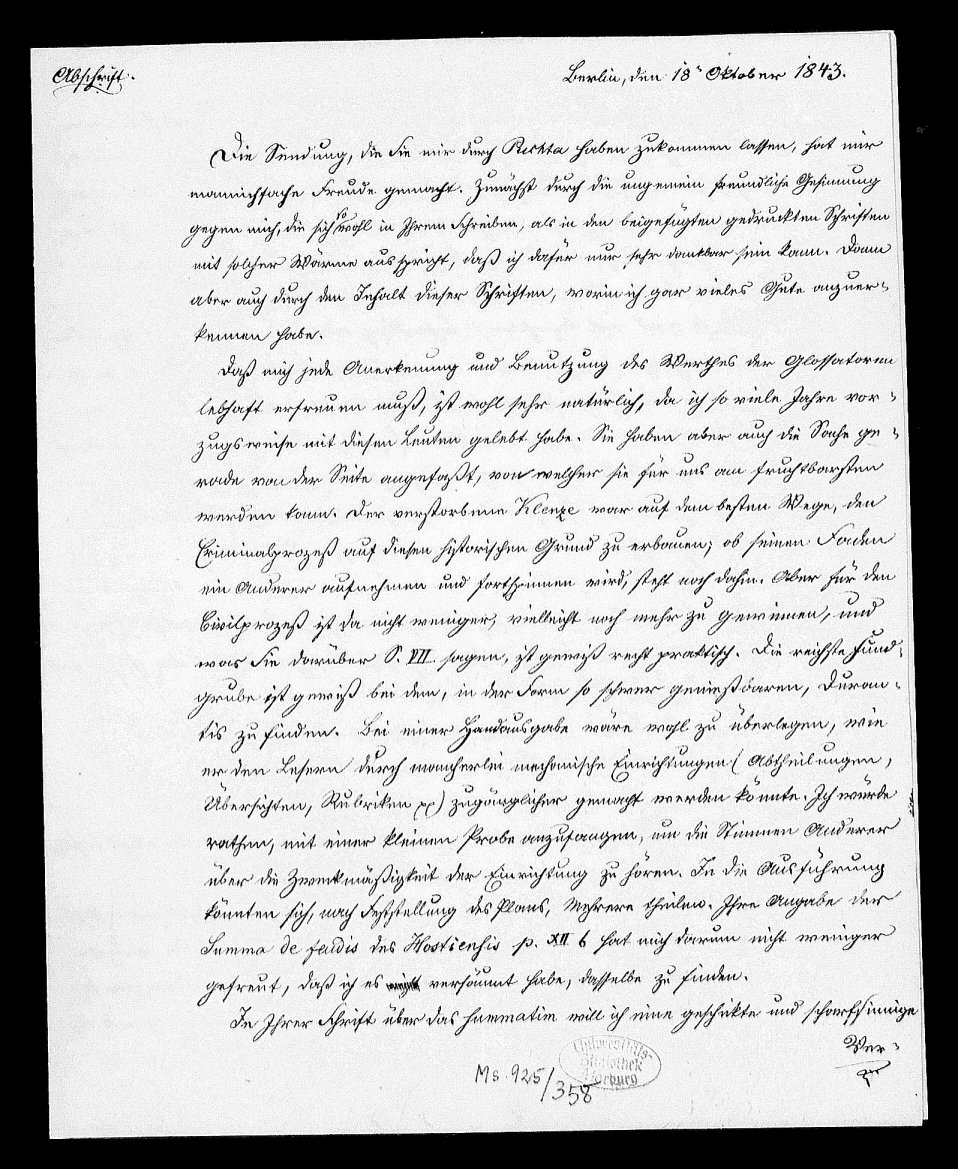 Abschrift.
Berlin, den 18t Oktober 1843.
Die Sendung, die Sie mir durch Richta haben zukommen lassen, hat mir
mannichfache Freude gemacht. Zunächst durch die ungemein freundliche Gesinnung
gegen mich, die sich sowohl in Ihrem Schreiben, als in den beigefügten gedruckten Schriften
mit solcher Wärme ausspricht, daß ich dafür nur sehr dankbar sein kann. Dann
aber auch durch den Inhalt dieser Schriften, worin ich gar vieles Gute anzuer-
kennen habe.
Daß mich jede Anerkennung und Benutzung des Werthes der Glossatoren
lebhaft erfreuen muß, ist wohl sehr natürlich, da ich so viele Jahre vor-
zugsweise mit diesen Leuten gelebt habe. Sie haben aber auch die Sache ge-
rade von der Seite angefaßt, von welcher sie für uns am fruchtbarsten
werden kann. Der verstorbene Klenze war auf dem besten Wege, den
Criminalprozeß auf diesen historischen Grund zu erbauen; ob seinen Faden
ein Anderer aufnehmen und fortspinnen wird, steht noch dahin. Aber für den
Civilprozeß ist da nicht weniger, vielleicht noch mehr zu gewinnen, und
was Sie darüber S. VII. sagen, ist gewiß recht praktisch. Die reichste Fund-
grube ist gewiß bei dem, in der Form so schwer genießbaren, Duran-
tis zu finden. Bei einer Handausgabe wäre wohl zu überlegen, wie
er den Lesern durch mancherlei mechanische Einrichtungen (Abtheilungen,
Übersichten, Rubriken pp) zugänglicher gemacht werden könnte. Ich würde
rathen, mit einer kleinen Probe anzufangen, um die Stimmen Anderer
über die Zweckmäßigkeit der Einrichtung zu hören. In die Ausführung
könnten sich, nach Feststellung des Plans, Mehrere theilen. Ihre Angabe der
Summa de feudis des Hostiensis p. XII 6 hat mich darum nicht weniger
gefreut, daß ich es versäumt habe, dasselbe zu finden.
In Ihrer Schrift über das summatim will ich eine geschikte und scharfsinnige
Ver-
Universitäts-
Bibliothek
Marburg
Ms. 925/358